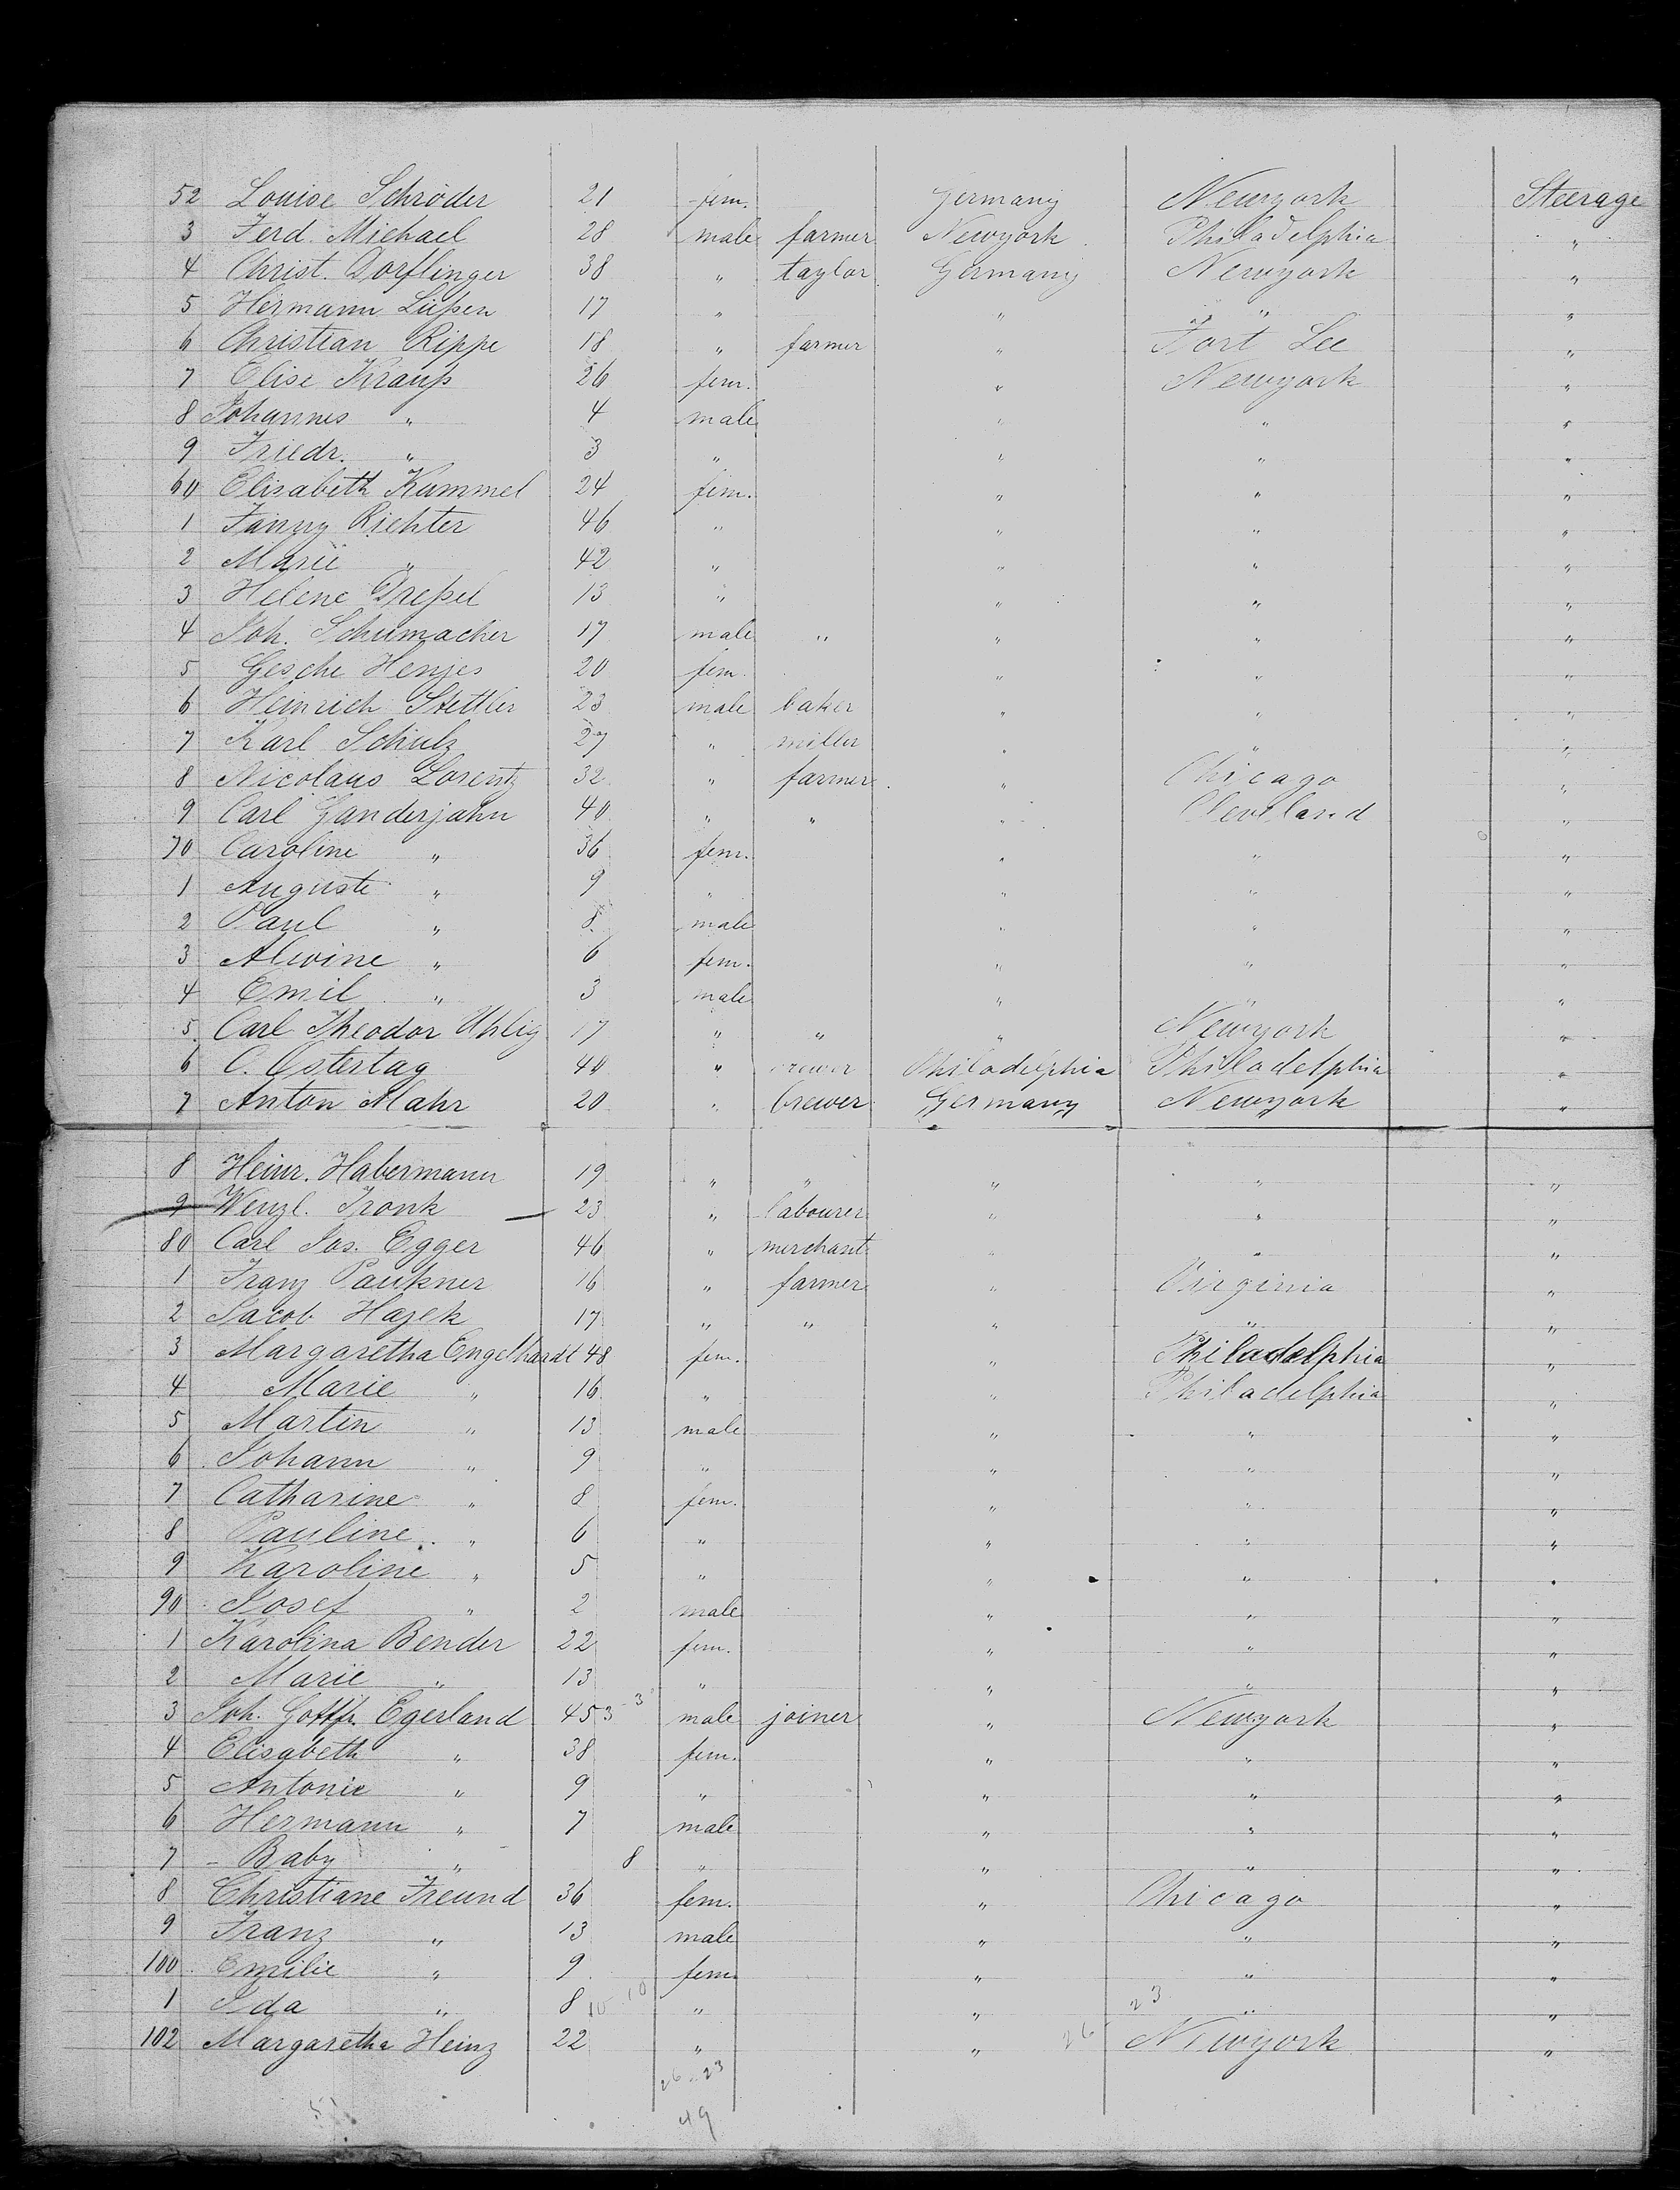 52 Louise Schröder 21 fem. Germany Newyork Steerage
3 Ferd. Michael 28 male farmer Newyork Philadelphia "
4 Christ. Dorflinger 38 " taylor Germany Newyork "
5 Hermann Lüßen 17 " " " "
6 Christian Rippe 18 " farmer " Fort Lee "
7 Elise Krauß 26 fem. " Newyork "
8 Johannes " 4 male " " "
9 Friedr. " 3 " " " "
60 Elisabeth Kammel 24 fem. " " "
1 Fanny Richter 46 " " " "
2 Marie " 42 " " " "
3 Helene Dreßel 13 " " " "
4 Joh. Schumacher 17 male " " " "
5 Gesche Henjes 20 fem. " " "
6 Heinrich Stettler 23 male baker " " "
7 Karl Schulz 27 " miller " " "
8 Nicolaus Lorentz 32 " farmer " Chicago "
9 Carl Ganderjahn 40 " " " Cleveland "
70 Caroline " 36 fem. " " "
1 Auguste " 9 " " " "
2 Paul " 8 male " " "
3 Alwine " 6 fem. " " "
4 Emil " 3 male " " "
5 Carl Theodor Uhlig 17 " " " Newyork "
6 C. Ostertag 40 " brewer Philadelphia Philadelphia "
7 Anton Mahr 20 " brewer Germany Newyork "
8 Heinr. Habermann 19 " " " " "
9 Wenzl. Tronk 23 " labourer " " "
80 Carl Jos. Egger 46 " merchant " " "
1 Franz Paukner 16 " farmer " Virginia "
2 Jacob Hazek 17 " " " " "
3 Margaretha Engelhardt 48 fem. " Philadelphia "
4 Marie " 16 " " Philadelphia "
5 Martin " 13 male " " "
6 Johann " 9 " " " "
7 Catharine " 8 fem. " " "
8 Pauline " 6 " " " "
9 Karoline " 5 " " " "
90 Josef " 2 male " " "
1 Karolina Bender 22 fem. " " "
2 Marie " 13 " " " "
3 Joh. Gottfr. Egerland 45 3 3 male joiner " Newyork "
4 Elisabeth " 38 fem. " " "
5 Antonie " 9 " " " "
6 Hermann " 7 male " " "
7 - Baby " 8 " " " "
8 Christiane Freund 36 fem. " Chicago "
9 Franz " 13 male " " "
100 Emilie " 9 fem. " " "
1 Ida " 8 10 10 " " 23 " "
102 Margaretha Heinz 22 " " 26 Newyork "
26 23
51 49